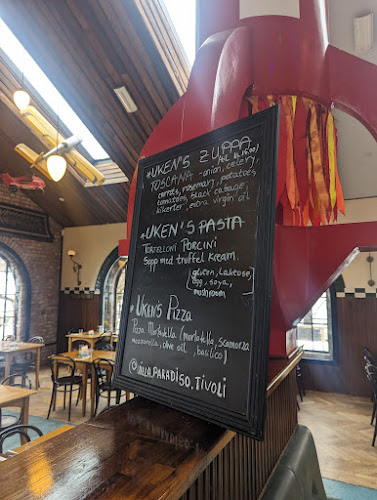 UKEN'S ZUPPA
(kl. 16:00)
TOSCANA - onion, celery,
carrots, rosemary, potatoes
tomatoes, black cabage,
kikerter, extra virgin oil
UKEN'S PASTA
TORTELLONI PORCINI
Sopp med truffel kream.
(gluten, Laktose,
egg, soya,
mushroom
UKEN'S Pizza
Pizza Mortadella (mortadella, scamorza
mozzarella, olive oil, basilico)
@villa PARADISO.TIVOLI